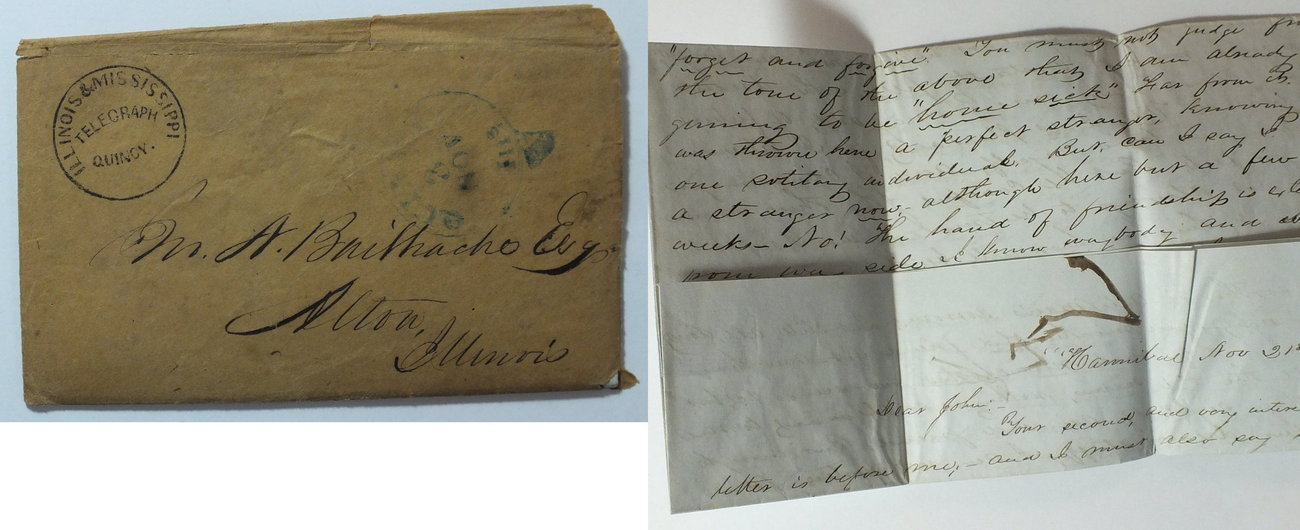 ILLINOIS & MISSISSIPPI
TELEGRAPH
QUINCY.
NOV
M. A. Bailhache Esq
Alton,
Illinois
"forget and forgive". You must not judge
the tone of the above that I am already
ginning to be "home sick" Far from it.
was thrown here a perfect stranger, knowing
one solitary individual. But, can I say I
a stranger now, although here but a few
weeks – No! The hand of friendship is
side. I know everybody and
Hannibal Nov 21st
Dear John: –
Your second, and very
letter is before me, – and I must also say